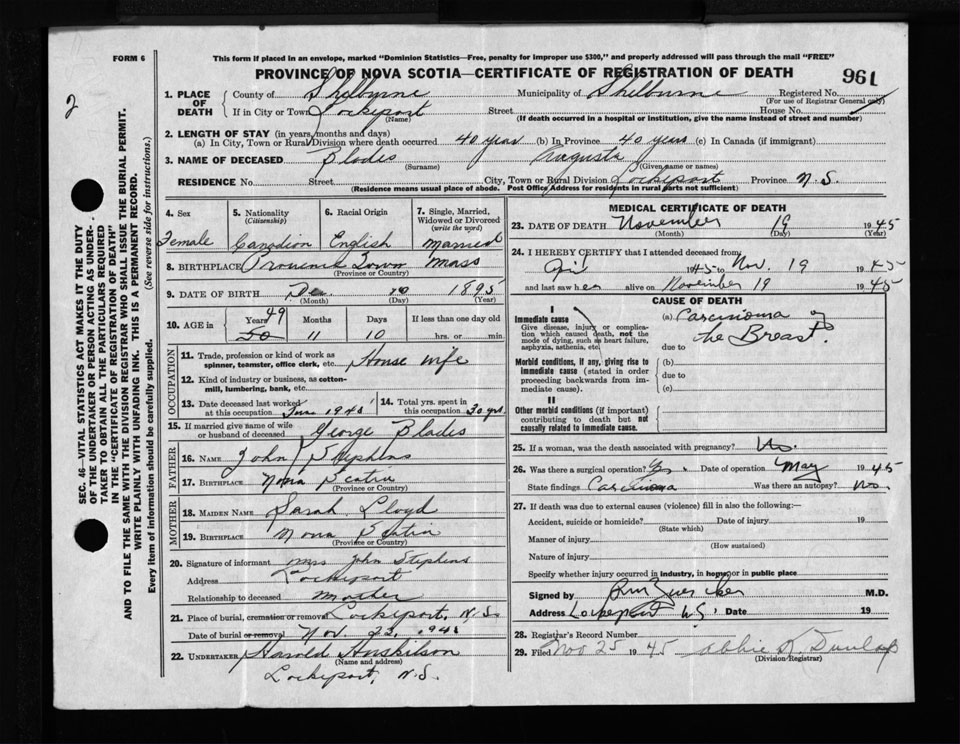 FORM 6
This form if placed in an envelope, marked "Dominion Statistics—Free, penalty for improper use $300," and properly addressed will pass through the mail "FREE"
PROVINCE OF NOVA SCOTIA—CERTIFICATE OF REGISTRATION OF DEATH
961
2
1. PLACE OF DEATH County of Shelburne Municipality of Shelburne Registered No.
(For use of Registrar General only)
If in City or Town Lockeport (Name) Street House No.
(If death occurred in a hospital or institution, give the name instead of street and number)
2. LENGTH OF STAY (in years, months and days)
(a) In City, Town or Rural Division where death occurred 40 years (b) In Province 40 years (c) In Canada (if immigrant)
3. NAME OF DECEASED Blades (Surname) Augusta (Given name or names)
RESIDENCE No. Street City, Town or Rural Division Lockeport Province N.S.
(Residence means usual place of abode. Post Office Address for residents in rural parts not sufficient)
SEC. 46—VITAL STATISTICS ACT MAKES IT THE DUTY
OF THE UNDERTAKER OR PERSON ACTING AS UNDER-
TAKER TO OBTAIN ALL THE PARTICULARS REQUIRED
IN THE "CERTIFICATE OF REGISTRATION OF DEATH"
AND TO FILE THE SAME WITH THE DIVISION REGISTRAR WHO SHALL ISSUE THE BURIAL PERMIT.
WRITE PLAINLY WITH UNFADING INK. THIS IS A PERMANENT RECORD.
Every item of information should be carefully supplied. (See reverse side for instructions.)
4. Sex 5. Nationality (Citizenship) 6. Racial Origin 7. Single, Married, Widowed or Divorced (write the word)
Female Canadian English Married
8. BIRTHPLACE Province Town Mass
(Province or Country)
9. DATE OF BIRTH Dec 10 1895
(Month) (Day) (Year)
10. AGE in Years Months Days If less than one day old
49
50 11 10 hrs. or min.
OCCUPATION
11. Trade, profession or kind of work as spinner, teamster, office clerk, etc. House wife
12. Kind of industry or business, as cotton-mill, lumbering, bank, etc.
13. Date deceased last worked at this occupation June 1945 14. Total yrs. spent in this occupation 30 yrs.
15. If married give name of wife or husband of deceased George Blades
FATHER
16. NAME John Stephens
17. BIRTHPLACE Nova Scotia
(Province or Country)
MOTHER
18. MAIDEN NAME Sarah Lloyd
19. BIRTHPLACE Nova Scotia
(Province or Country)
20. Signature of informant Mrs John Stephens
Address Lockeport
Relationship to deceased Mother
21. Place of burial, cremation or removal Lockeport, N.S.
Date of burial or removal Nov. 22, 194
22. UNDERTAKER Harold Huskilson
(Name and address)
Lockeport, N.S.
MEDICAL CERTIFICATE OF DEATH
23. DATE OF DEATH November 19 1945
(Month) (Day) (Year)
24. I HEREBY CERTIFY that I attended deceased from
1945 to Nov. 19 1945
and last saw her alive on November 19 1945
CAUSE OF DEATH
I
Immediate cause
Give disease, injury or complication which caused death, not the mode of dying, such as heart failure, asphyxia, asthenia, etc.
(a) Carcinoma of
the Breast.
due to
Morbid conditions, if any, giving rise to immediate cause (stated in order proceeding backwards from immediate cause).
(b)
due to
(c)
II
Other morbid conditions (if important) contributing to death but not causally related to immediate cause.
25. If a woman, was the death associated with pregnancy? No.
26. Was there a surgical operation? Yes. Date of operation May 1945
State findings Carcinoma Was there an autopsy? No.
27. If death was due to external causes (violence) fill in also the following:—
Accident, suicide or homicide? Date of injury 19
(State which)
Manner of injury
(How sustained)
Nature of injury
Specify whether injury occurred in industry, in home, or in public place
Signed by M.D.
Address Lockeport N.S. Date 19
28. Registrar's Record Number
29. Filed Nov 25 1945 Abbie R. Dunlop
(Division Registrar)